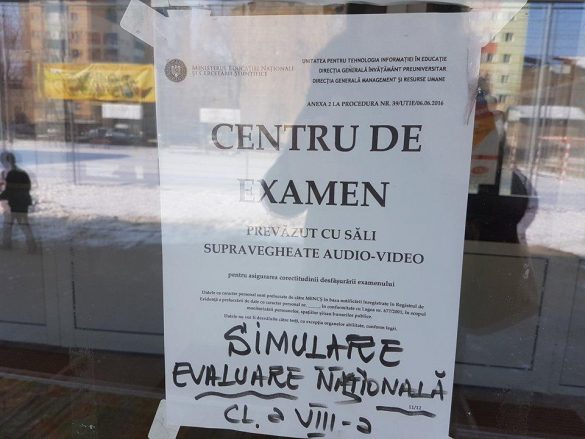 MINISTERUL EDUCAȚIEI NAȚIONALE
ȘI CERCETĂRII ȘTIINȚIFICE
UNITATEA PENTRU TEHNOLOGIA INFORMAȚIEI ÎN EDUCAȚIE
DIRECȚIA GENERALĂ ÎNVĂȚĂMÂNT PREUNIVERSITAR
DIRECȚIA GENERALĂ MANAGEMENT ȘI RESURSE UMANE
ANEXA 2 LA PROCEDURA NR. 39/UTIE/06.06.2016
CENTRU DE
EXAMEN
PREVĂZUT CU SĂLI
SUPRAVEGHEATE AUDIO-VIDEO
pentru asigurarea corectitudinii desfășurării examenului
Datele cu caracter personal sunt prelucrate de către MENCȘ în baza notificării înregistrate în Registrul de
Evidență a prelucrării de date cu caracter personal nr. ______, în conformitate cu Legea nr. 677/2001, în scopul
monitorizării persoanelor, spațiilor și/sau bunurilor publice.
Datele nu vor fi dezvăluite către terți, cu excepția organelor abilitate, conform legii.
SIMULARE
EVALUARE NAȚIONALĂ
11/12
CL. a VIII-a